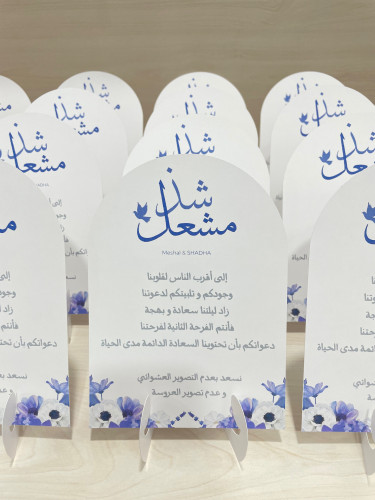 شذا
مشعل
Mechal & SHADHA
إلى أقرب الناس لقلوبنا
وجودكم و تلبيتكم لدعوتنا
زاد ليلتنا سعادة و بهجة
فأنتم الفرحة الثانية لفرحتنا
دعواتكم بأن تحتوينا السعادة الدائمة مدى الحياة
نسعد بعدم التصوير العشوائي
و عدم تصوير العروسة